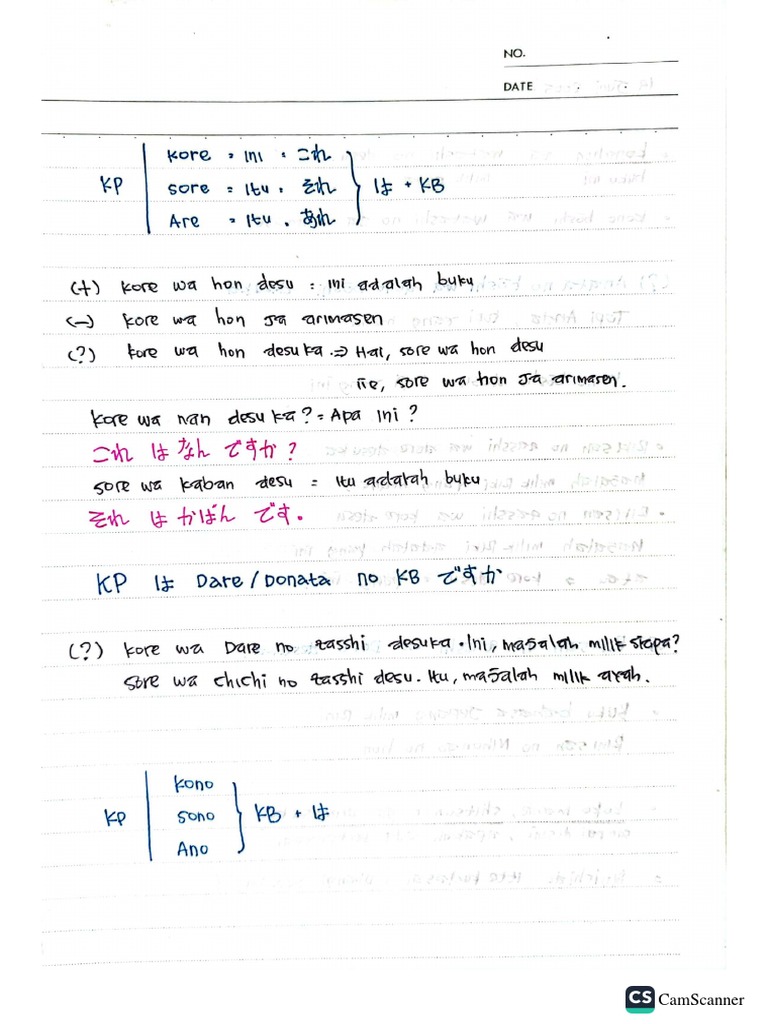 NO.
DATE
KP
Kore = ini = これ
Sore = itu = それ
Are = itu = あれ
は + KB
(+) Kore wa hon desu = ini adalah buku
(-) Kore wa hon ja arimasen
(?) Kore wa hon desuka => Hai, sore wa hon desu
iie, sore wa hon ja arimasen.
Kore wa nan desuka? = Apa ini?
これ は なん ですか?
Sore wa kaban desu = itu adalah buku
それ は かばん です.
KP は Dare / Donata no KB ですか
(?) Kore wa Dare no zasshi desuka. Ini, majalah milik siapa?
Sore wa chichi no zasshi desu. Itu, majalah milik ayah.
KP
Kono
Sono
Ano
KB + は
CS CamScanner